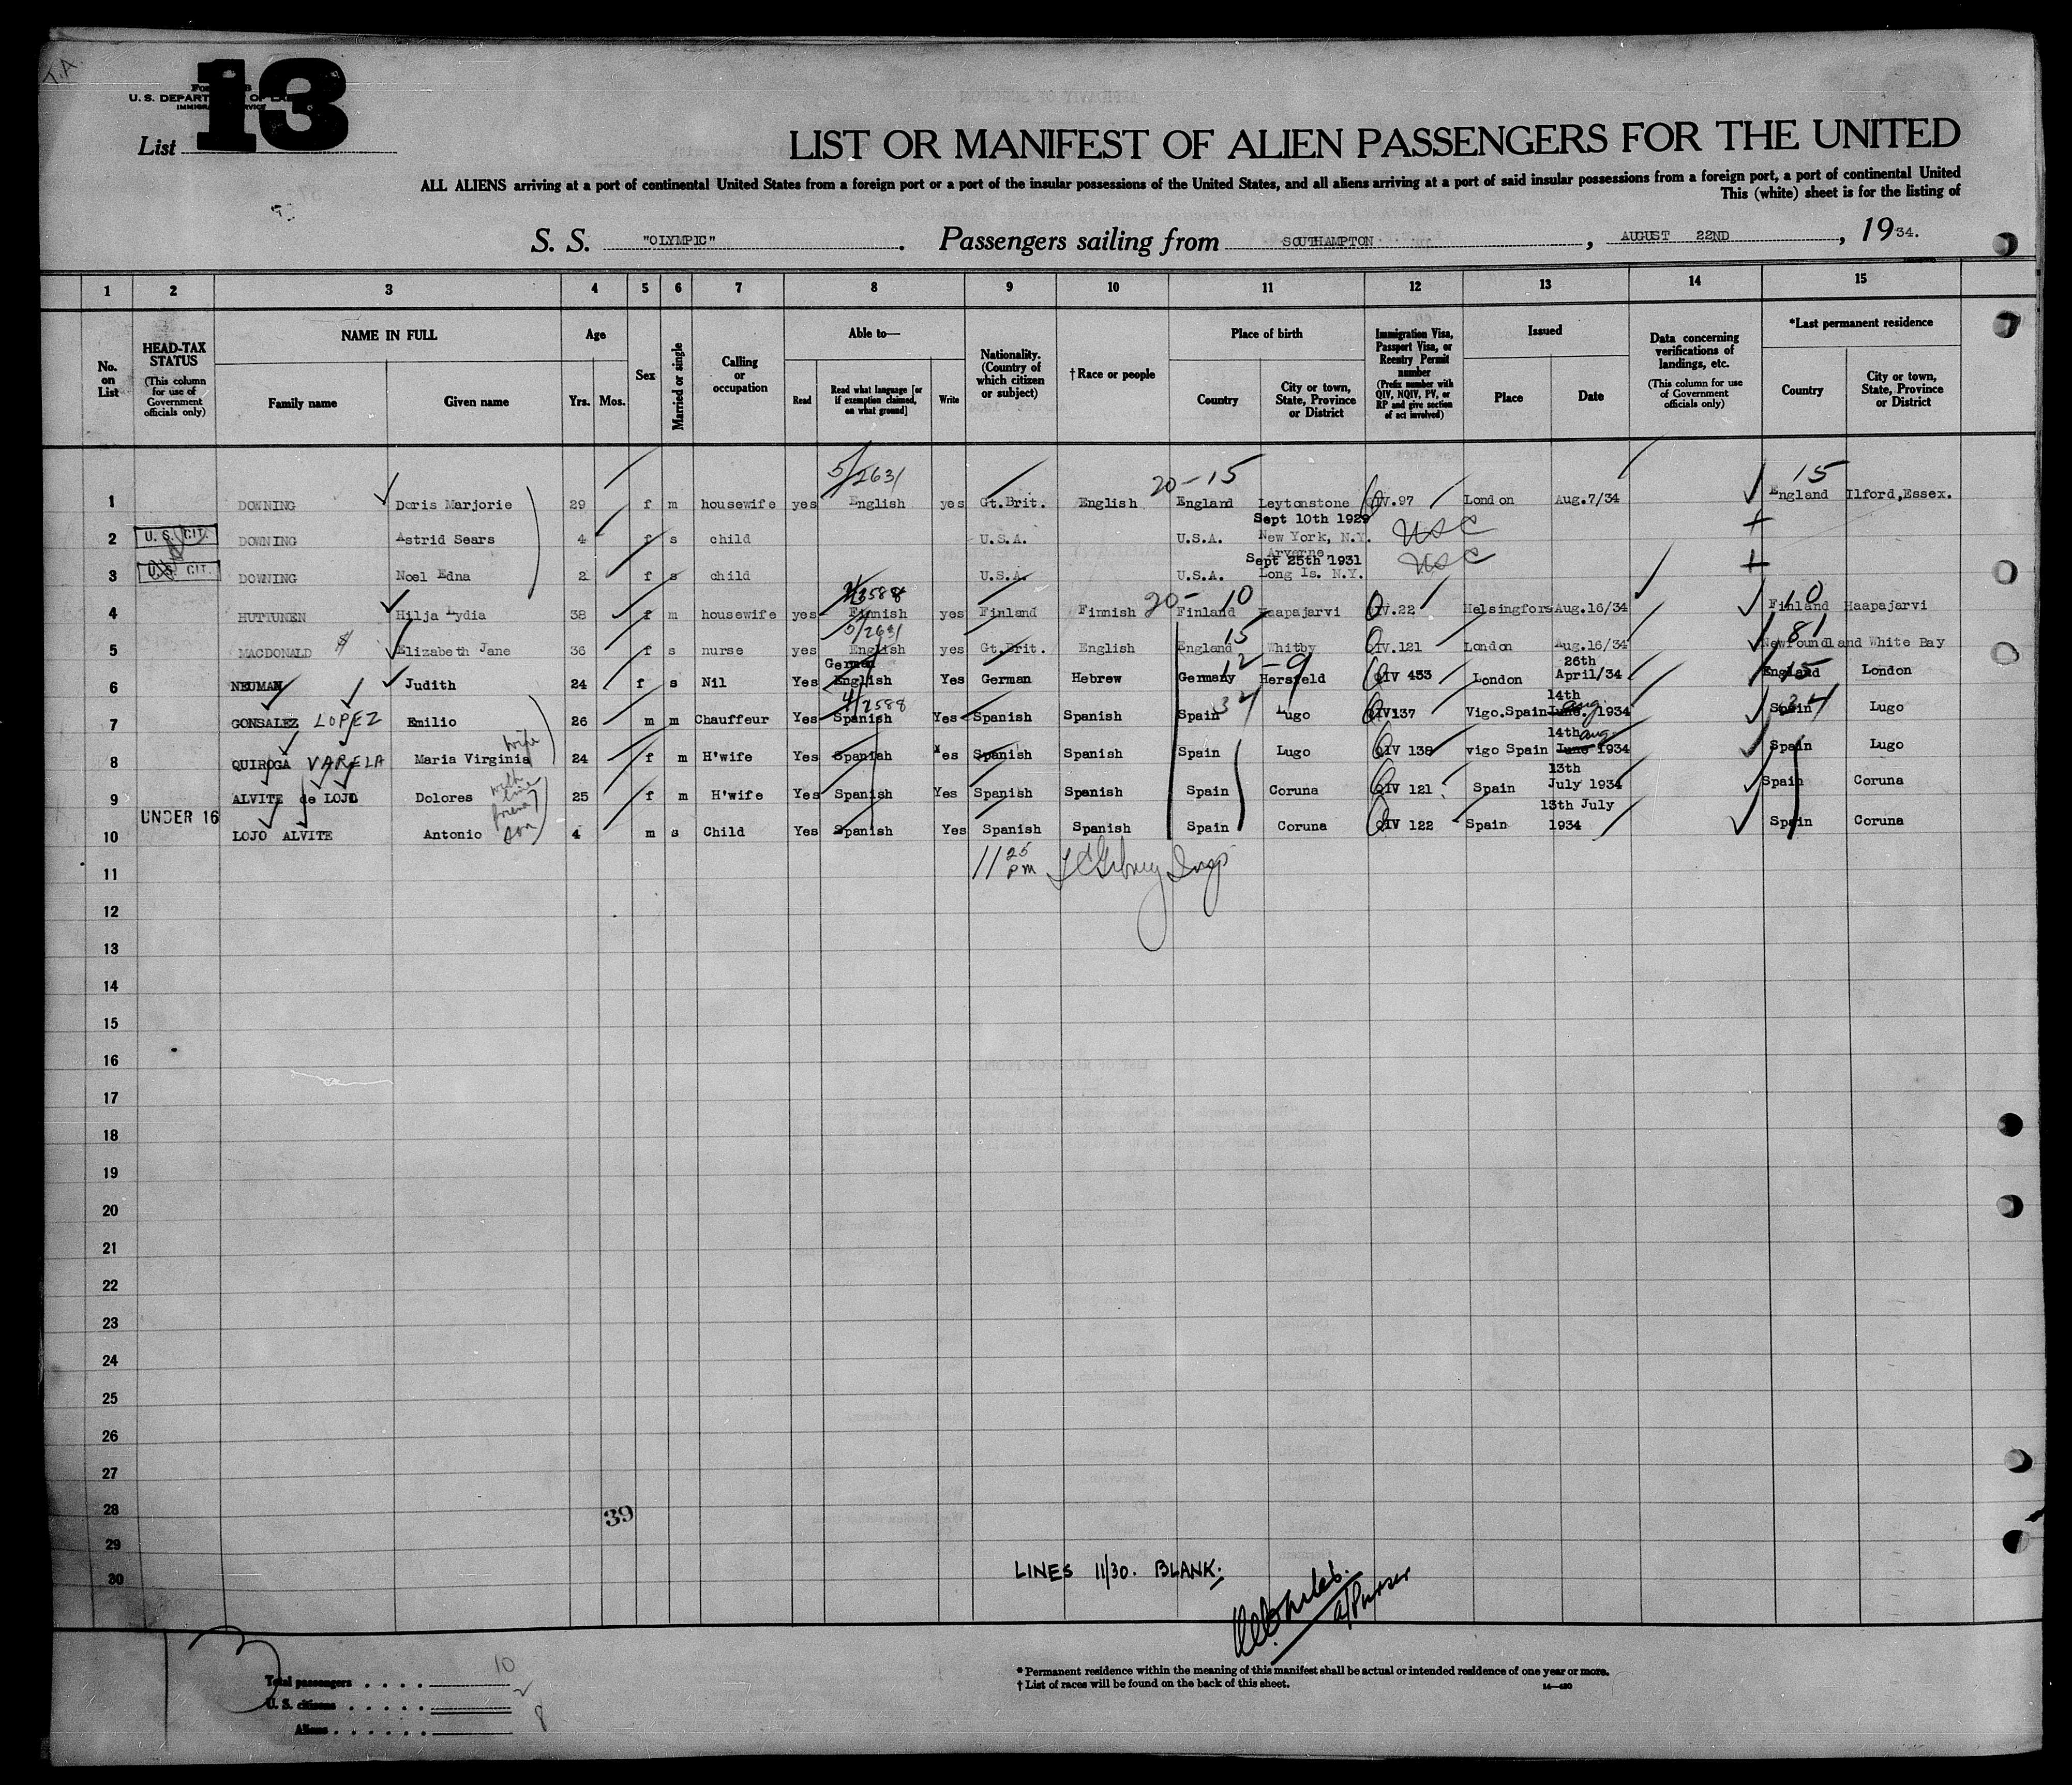 T.A.
13
U. S. DEPARTMENT OF LABOR
IMMIGRATION SERVICE
List
LIST OR MANIFEST OF ALIEN PASSENGERS FOR THE UNITED
ALL ALIENS arriving at a port of continental United States from a foreign port or a port of the insular possessions of the United States, and all aliens arriving at a port of said insular possessions from a foreign port, a port of continental United
This (white) sheet is for the listing of
S. S. "OLYMPIC". Passengers sailing from SOUTHAMPTON, AUGUST 22ND, 1934.
1 2 3 4 5 6 7 8 9 10 11 12 13 14 15
No. on List
HEAD-TAX STATUS (This column for use of Government officials only)
NAME IN FULL Family name Given name
Age Yrs. Mos.
Sex
Married or single
Calling or occupation
Able to— Read Read what language [or if exemption claimed, on what ground] Write
Nationality. (Country of which citizen or subject)
†Race or people
Place of birth Country City or town, State, Province or District
Immigration Visa, Passport Visa, or Reentry Permit number (Prefix number with QIV, NQIV, PV, or RP and give section of act involved)
Issued Place Date
Data concerning verifications of landings, etc. (This column for use of Government officials only)
*Last permanent residence Country City or town, State, Province or District
5/2631 20-15 15
1 DOWNING Doris Marjorie 29 f m housewife yes English yes Gt.Brit. English England Leytonstone QIV.97 London Aug.7/34 England Ilford,Essex.
Sept 10th 1929
2 U. S. CIT. DOWNING Astrid Sears 4 f s child U.S.A. U.S.A. New York, N.Y. USC
Arverne
Sept 25th 1931
3 U. S. CIT. DOWNING Noel Edna 2 f s child U.S.A. U.S.A. Long Is. N.Y. USC
4/2588 20-10 10
4 HUTTUNEN Hilja Lydia 38 f m housewife yes Finnish yes Finland Finnish Finland Haapajarvi QIV.22 Helsingfors Aug.16/34 Finland Haapajarvi
5/2631 15 81
5 MACDONALD Elizabeth Jane 36 f s nurse yes English yes Gt.Brit. English England Whitby QIV.121 London Aug.16/34 Newfoundland White Bay
German 12-9 26th 15
6 NEUMAN Judith 24 f s Nil Yes English Yes German Hebrew Germany Hersfeld QIV 453 London April/34 England London
4/2588 34 14th Aug. 34
7 GONSALEZ LOPEZ Emilio 26 m m Chauffeur Yes Spanish Yes Spanish Spanish Spain Lugo QIV137 Vigo.Spain June. 1934 Spain Lugo
wife 14th Aug.
8 QUIROGA VARELA Maria Virginia 24 f m H'wife Yes Spanish Yes Spanish Spanish Spain Lugo QIV 138 vigo Spain June 1934 Spain Lugo
13th
9 ALVITE de LOJO Dolores 25 f m H'wife Yes Spanish Yes Spanish Spanish Spain Coruna QIV 121 Spain July 1934 Spain Coruna
UNDER 16 son 13th July
10 LOJO ALVITE Antonio 4 m s Child Yes Spanish Yes Spanish Spanish Spain Coruna QIV 122 Spain 1934 Spain Coruna
11 11 25 pm
12
13
14
15
16
17
18
19
20
21
22
23
24
25
26
27
28 39
29
LINES 11/30. BLANK.
30
a/Purser
Total passengers 10
U. S. citizens 2
Aliens 8
* Permanent residence within the meaning of this manifest shall be actual or intended residence of one year or more.
† List of races will be found on the back of this sheet.
14—430